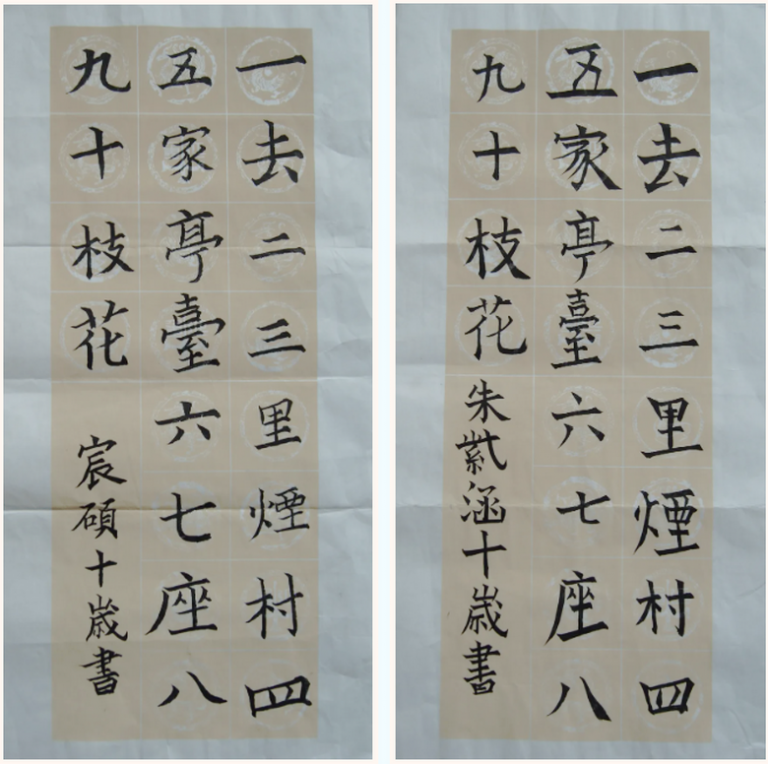 一去二三里煙村四
五家亭臺六七座八
九十枝花 宸碩十歲書
一去二三里煙村四
五家亭臺六七座八
九十枝花 朱紫涵十歲書